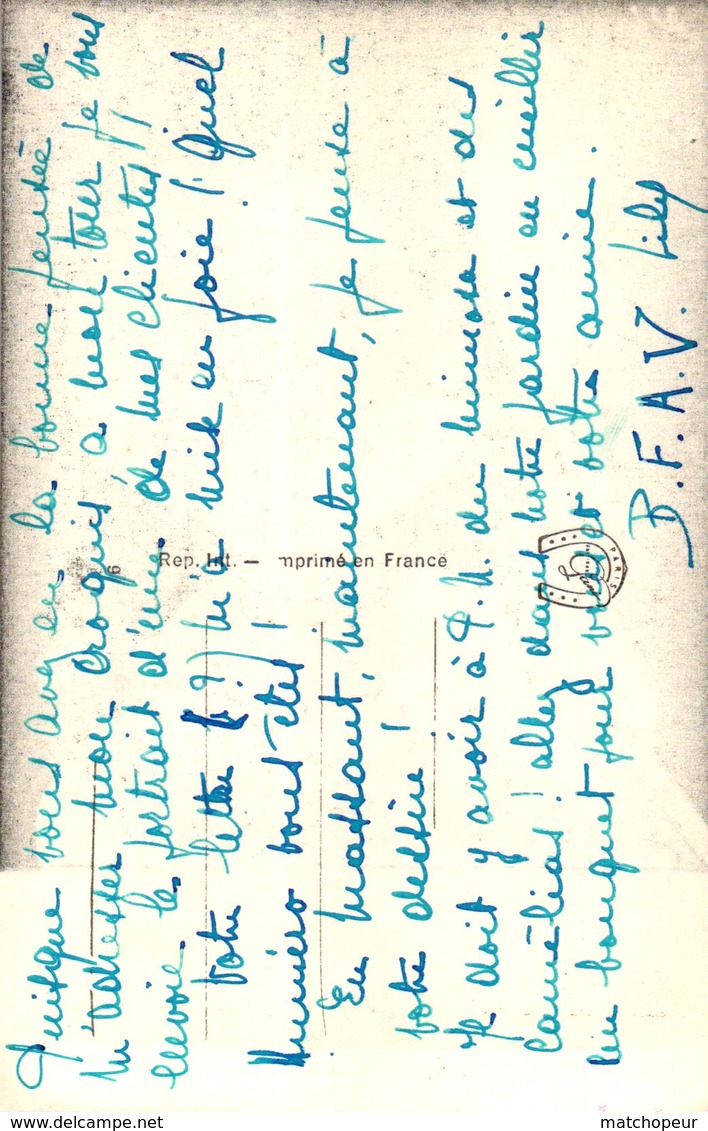 Puisque vous avez eu la bonne pensée de
m'adresser mon croquis à mon tour je vous
envoie le portrait d'une de mes clientes !!
Votre lettre (?) m'a mise en joie ! Quel
numéro vous êtes !
En massant, maintenant, je pense à
votre dessin !
Il doit y avoir à P. N. du mimosa et des
camélias ! allez dans notre jardin en cueillir
un bouquet pour vous et votre amie.
B. F. A. V. Lily
Rep. Int. — Imprimé en France
6
PARIS
matchopeur